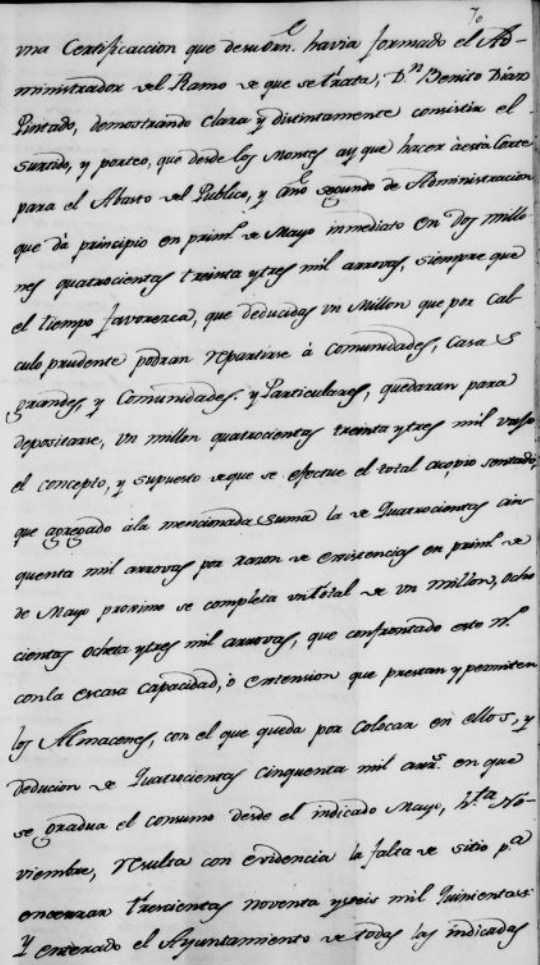 70
vna Certificaccion que desu orn. havia formado el Ad-
ministrador del Ramo de que se trata, Dn Benito Diaz
Pintado, demostrando clara y distintamente consistir el
surtido, y porteo, que desde los Montes ay que hacer à està Corte
para el Abasto del Publico, y año segundo de Administracion
que dà principio en prim.o de Mayo inmediato en dos millo-
nes quatrocientas treinta y tres mil arrovas, siempre que
el tiempo favorezca, que deducidas vn Millon que por Cal-
culo prudente podran repartirse à Comunidades, Casas
grandes, y Comunidades. y Particulares, quedaran para
depositarse, vn millon quatrocientas treinta y tres mil vajo
el concepto, y supuesto de que se efectue el total acopio sentado,
que agregado àla mencionada suma la de quatrocientas cin-
quenta mil arrovas por razon de existencias en prim.o de
de Mayo proximo se completa vn total de vn millon, ocho
cientas ocheta y tres mil arrovas, que confrontado este n.o
conla escasa capacidad, ò extension que prestan y permiten
los Almacenes, con el que queda por Colocar en ellos, y
deducion de quatrocientas cinquenta mil arr.s en que
se gradua el consumo desde el indicado Mayo, h.ta No-
viembre, resulta con evidencia la falta de sitio p.a
encerrar trescientas noventa y seis mil quinientas
Y enterado el Ayuntamiento de todas las indicadas